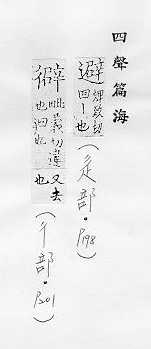 四聲篇海
避 婢致切
回丨也
(辵部。P198)
毗義切違
也迴也
又去
也
(彳部。P201)